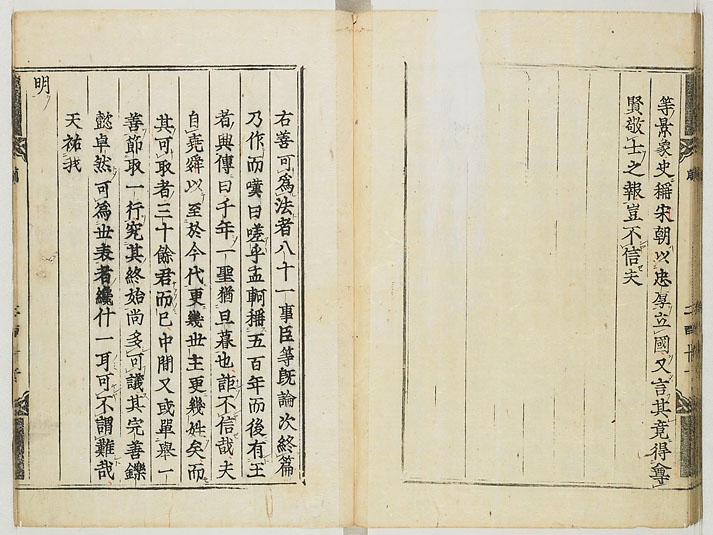 等景象史稱宋朝以忠厚立國又言其竟得尊
賢敬士之報豈不信夫
右善可爲法者八十一事臣等旣論次終篇
乃作而嘆曰嗟乎孟軻稱五百年而後有王
者興傳曰千年一聖猶旦暮也詎不信哉夫
自堯舜以至於今代更幾世主更幾姓矣而
其可取者三十餘君而已中間又或單舉一
善節取一行究其終始尚多可議其完善鑠
懿卓然可爲世表者纔什一耳可不謂難哉
天祐我
明